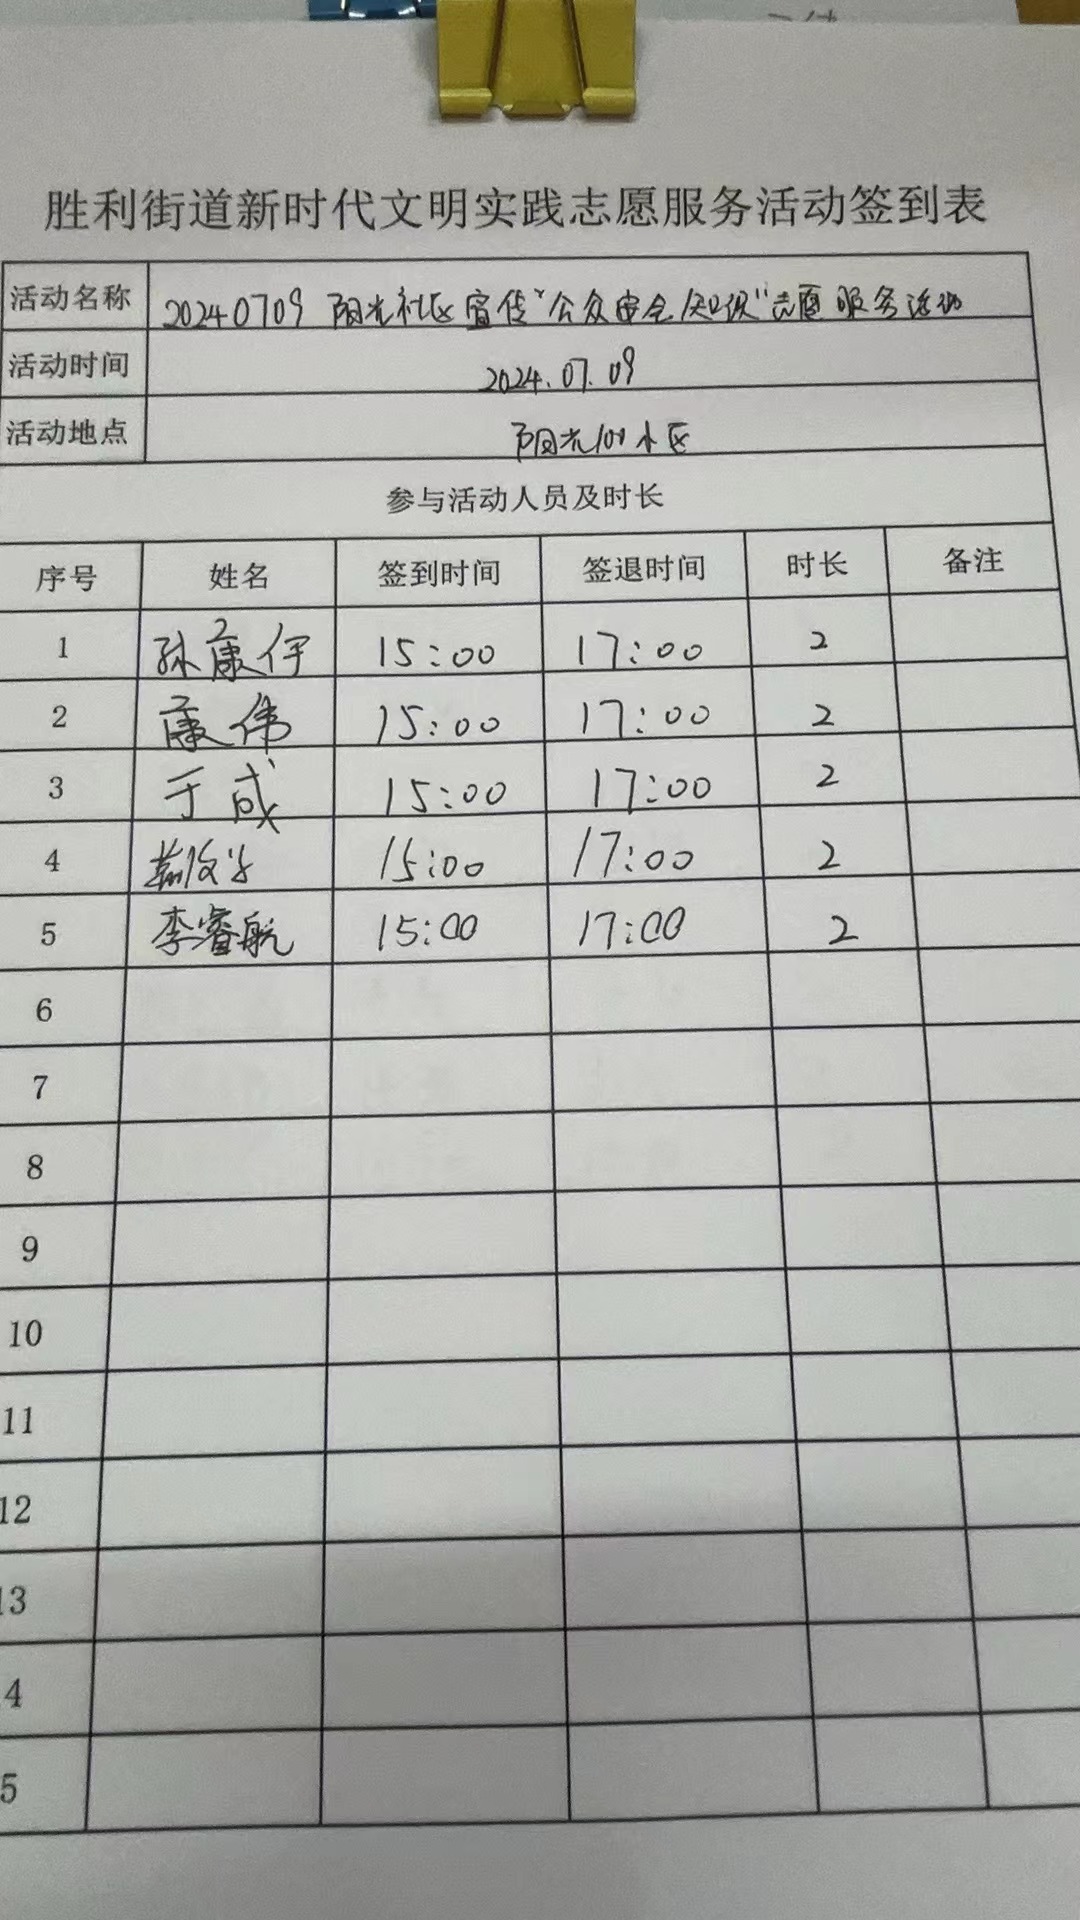 胜利街道新时代文明实践志愿服务活动签到表
活动名称 20240709 阳光社区宣传"公众安全知识"志愿服务活动
活动时间 2024.07.09
活动地点 阳光100小区
参与活动人员及时长
序号 姓名 签到时间 签退时间 时长 备注
1 孙康伊 15:00 17:00 2
2 康伟 15:00 17:00 2
3 于成 15:00 17:00 2
4 15:00 17:00 2
5 李睿航 15:00 17:00 2
6
7
8
9
10
11
12
13
4
5